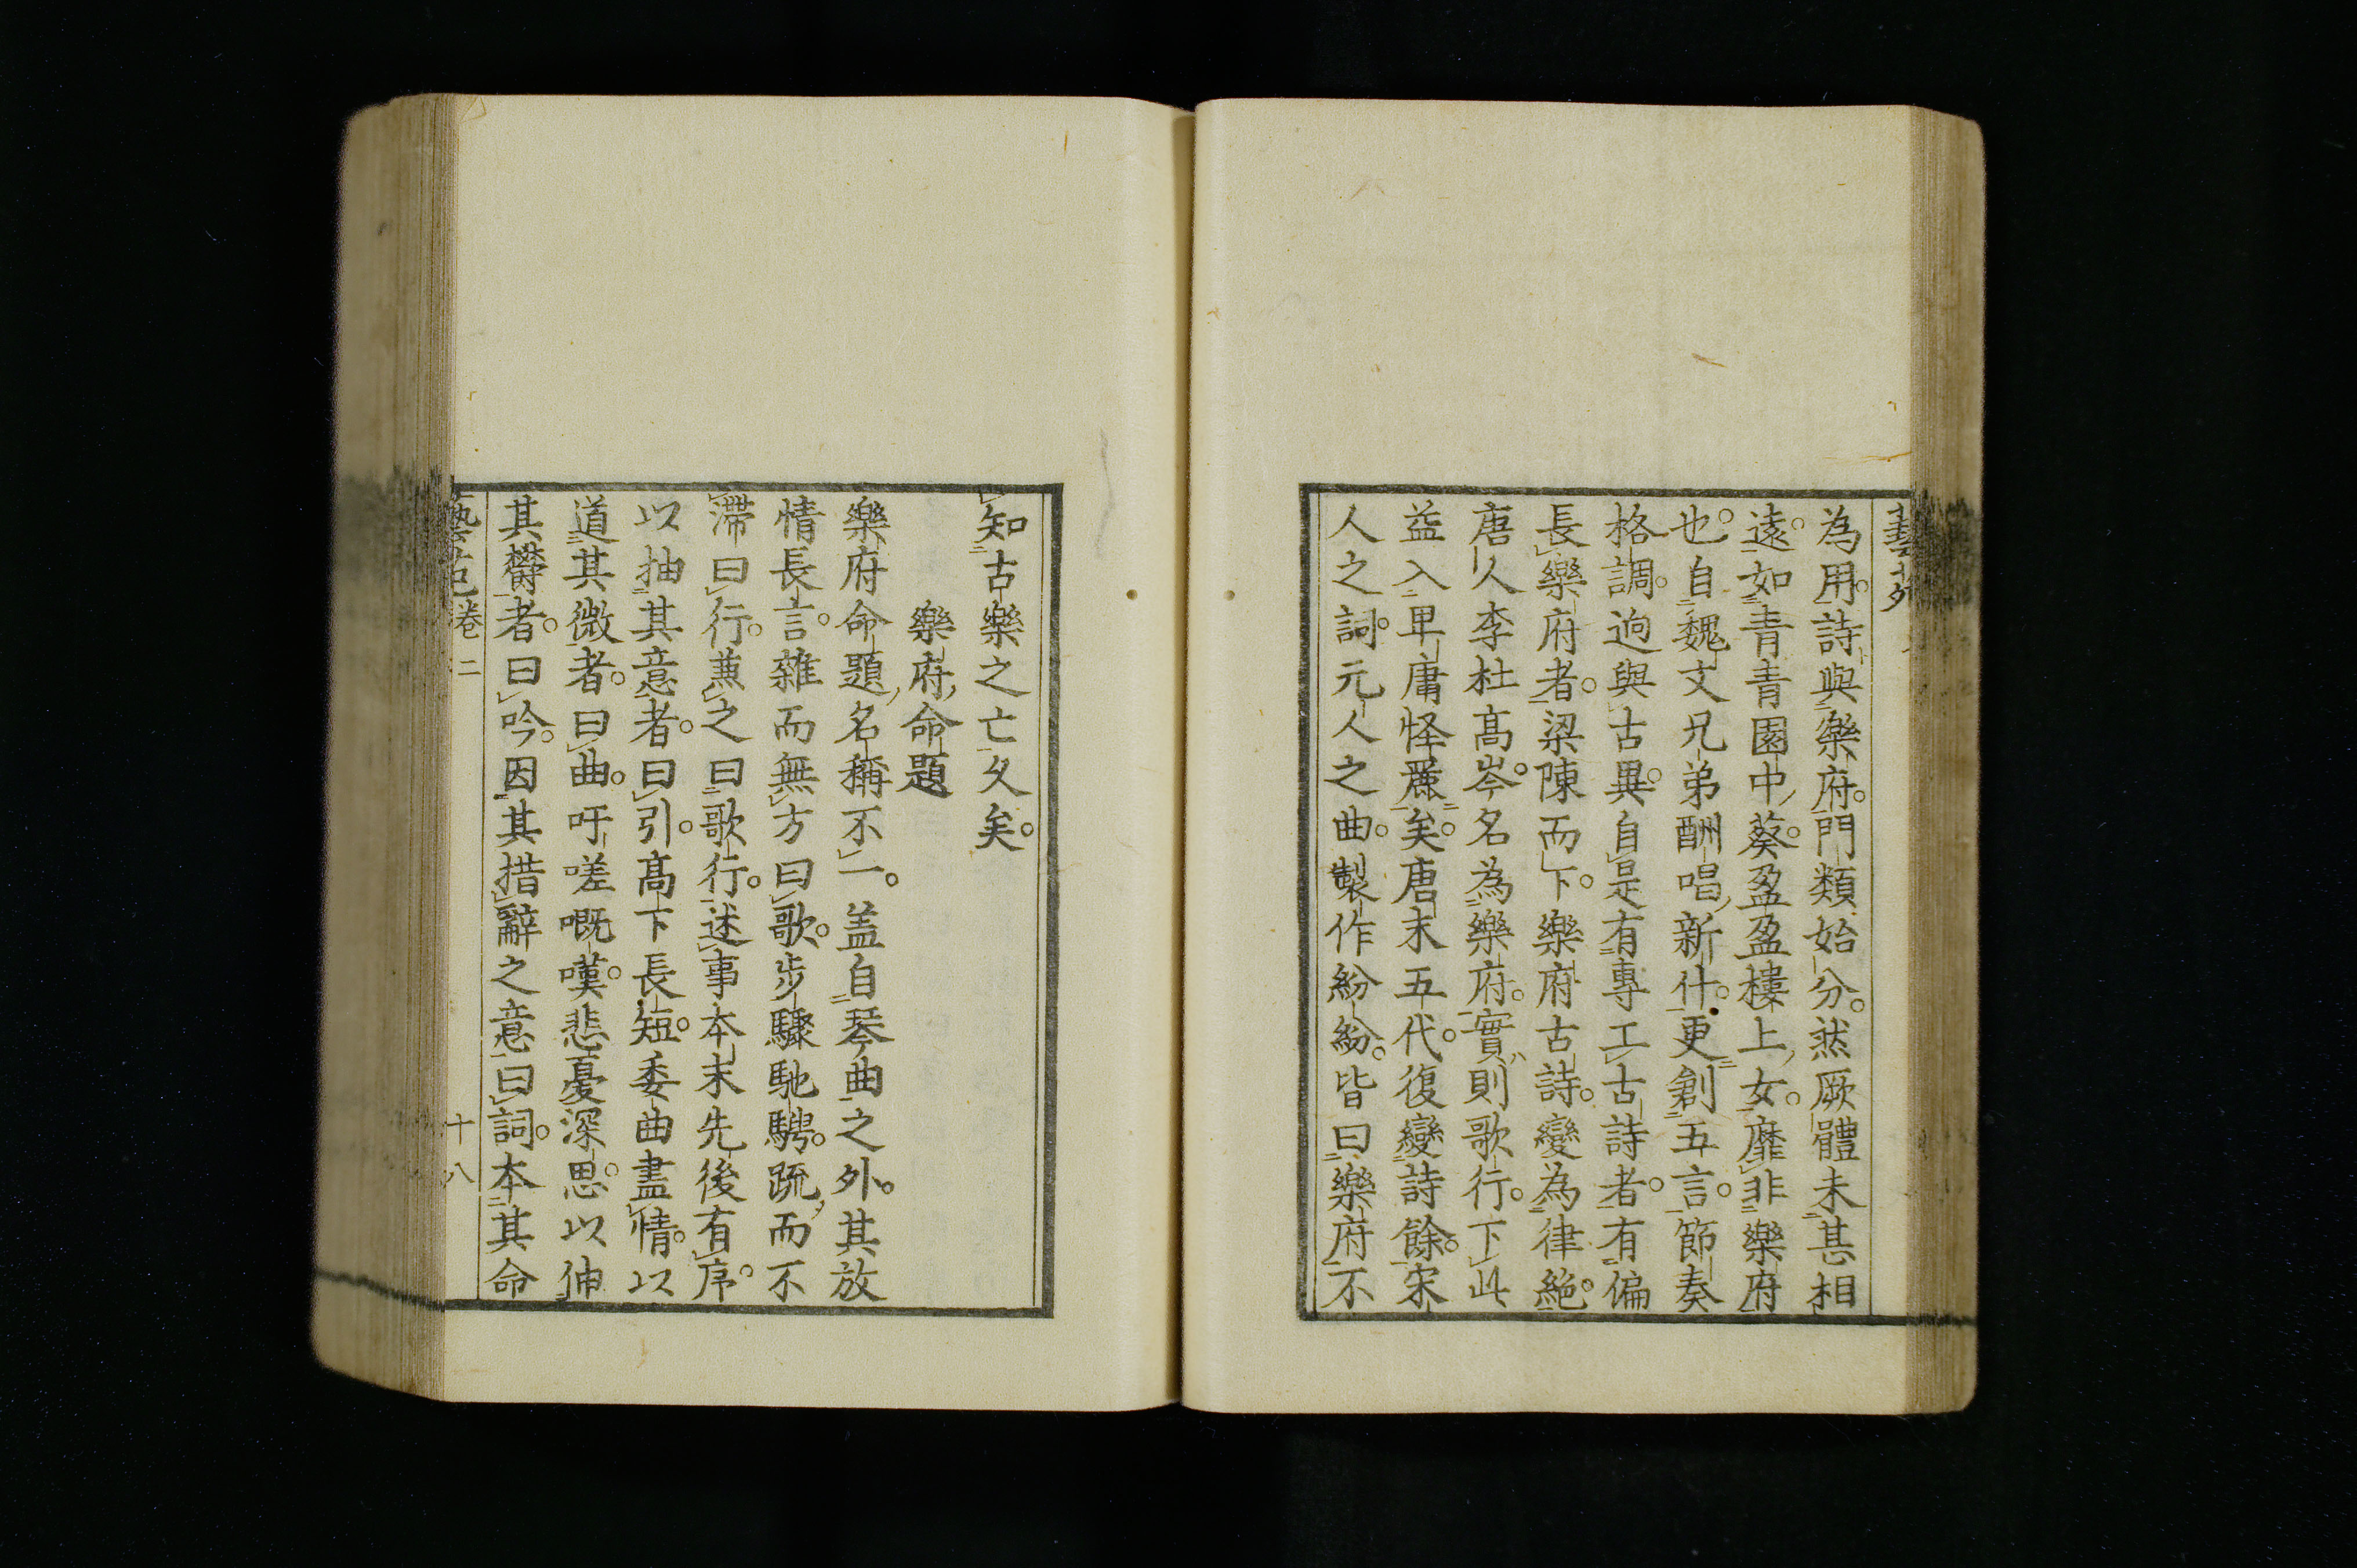 為用。詩與樂府。門類始分。然厥體未甚相
遠。如青青園中葵。盈盈樓上女。靡非樂府
也。自魏文兄弟酬唱新什。更創五言。節奏
格調。逈與古異。自是有專工古詩者。有偏
長樂府者。梁陳而下。樂府古詩。變為律絕。
唐人李杜高岑。名為樂府。實則歌行。下此
益入卑庸怪麗矣。唐末五代。復變詩餘。宋
人之詞。元人之曲。製作紛紛。皆曰樂府不
知古樂之亡久矣。
樂府命題
樂府命題名稱不一。盖自琴曲之外。其放
情長言。雜而無方曰歌。步驟馳騁。疏而不
滯曰行。兼之曰歌行。述事本末先後有序。
以抽其意者。曰引。高下長短。委曲盡情。以
道其微者。曰曲。吁嗟嘅嘆。悲憂深思。以伸
其欝者。曰吟。因其措辭之意曰詞。本其命
藝苑卷二 十八